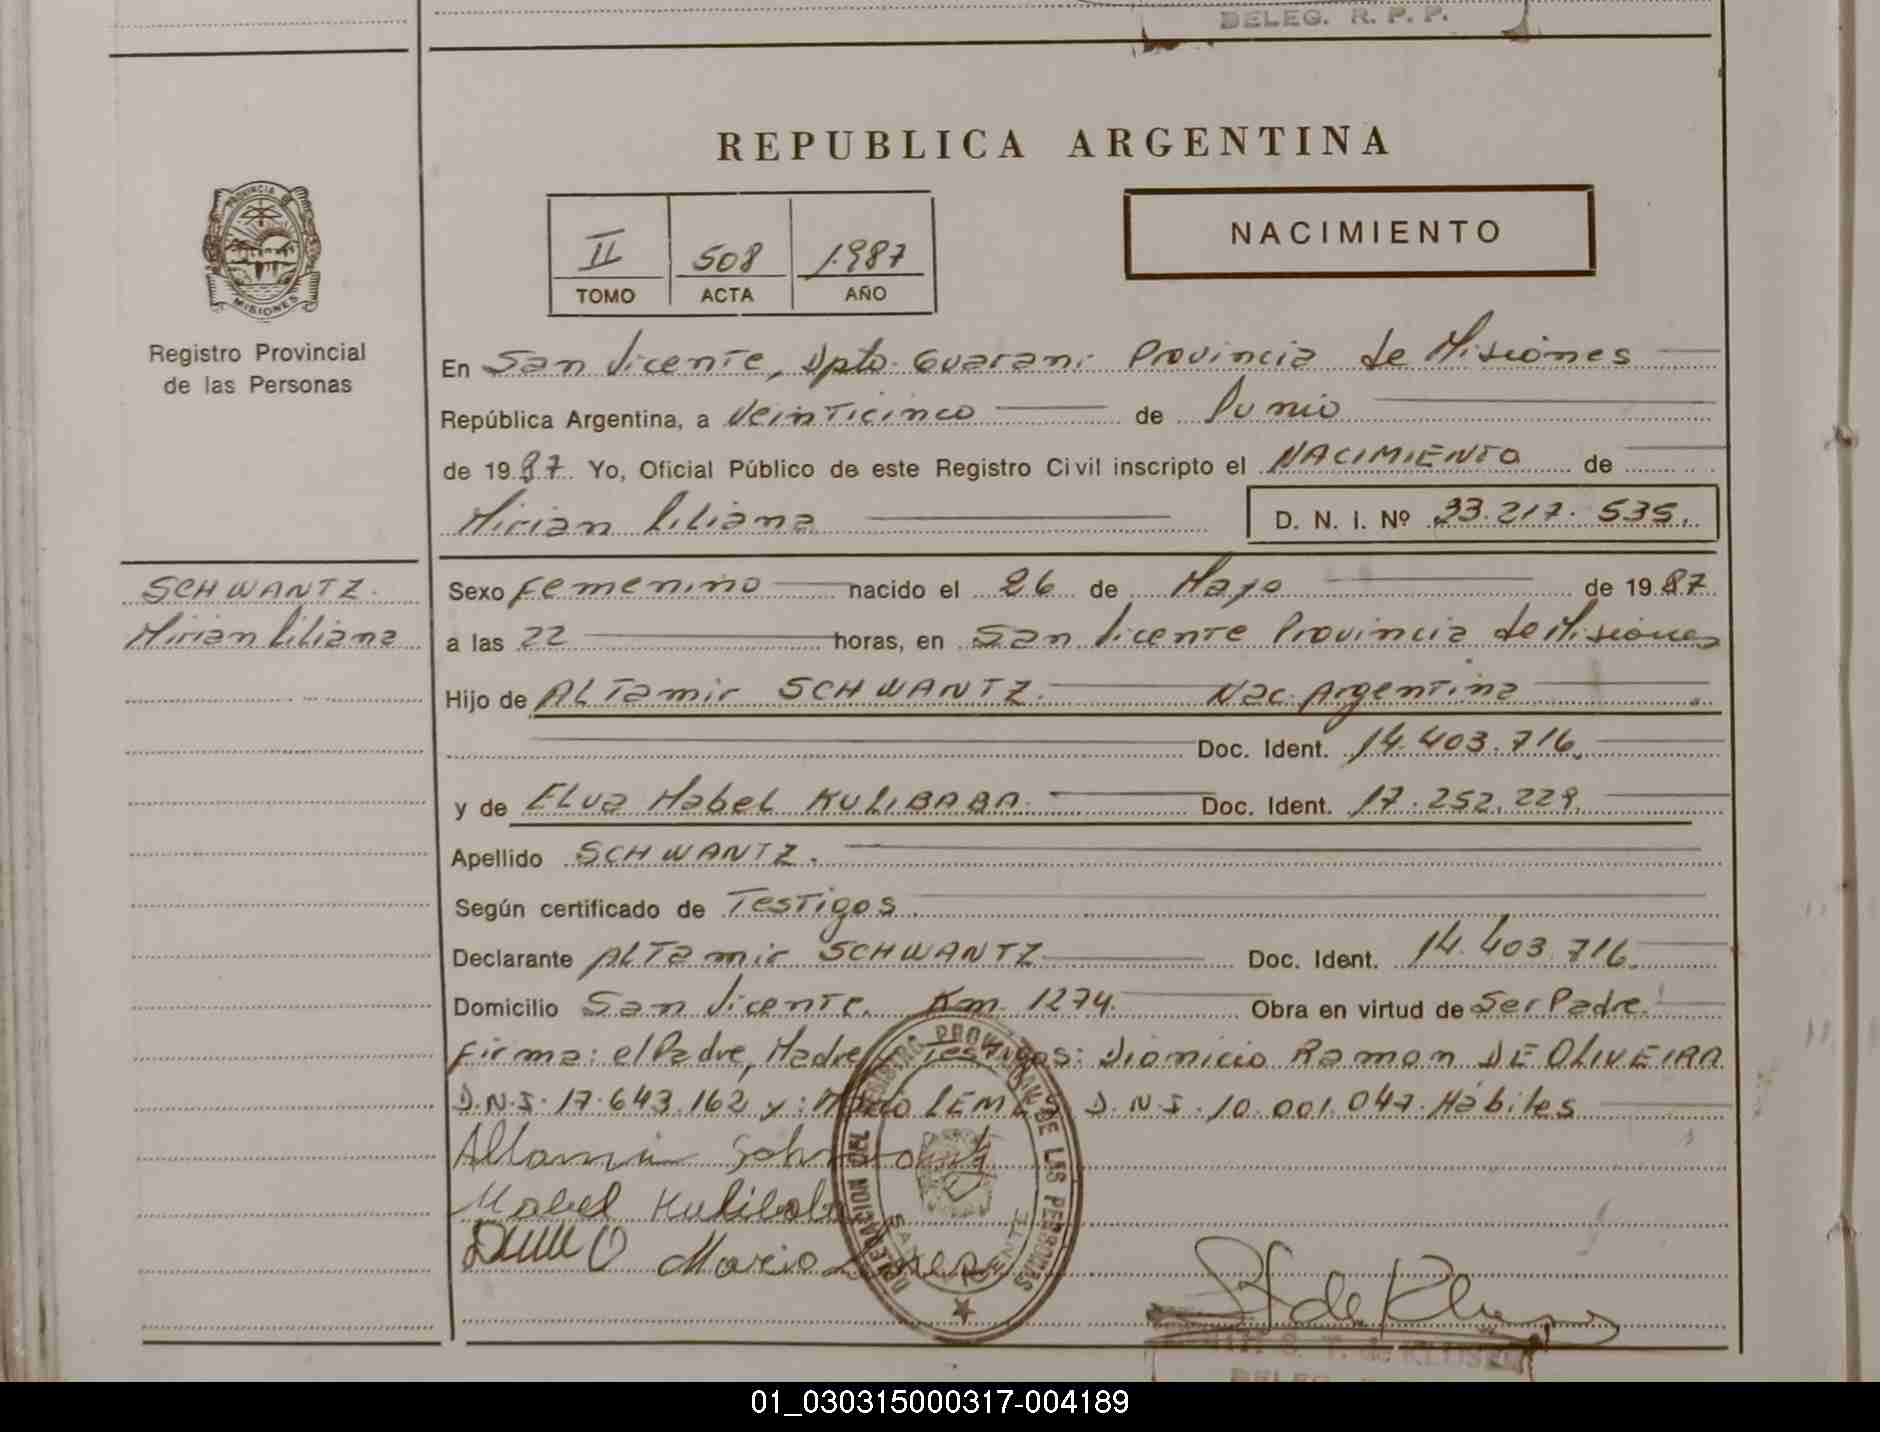 DELEG. R. P. P.
REPUBLICA ARGENTINA
PROVINCIA
MISIONES
II 508 1987
TOMO ACTA AÑO
NACIMIENTO
Registro Provincial
de las Personas
En San Vicente, Dpto. Guarani Provincia de Misiones
República Argentina, a Veinticinco de Junio
de 1987. Yo, Oficial Público de este Registro Civil inscripto el NACIMIENTO de
Mirian Liliana D. N. I. Nº 33.217.535.
SCHWANTZ.
Mirian Liliana
Sexo Femenino nacido el 26 de Mayo de 1987
a las 22 horas, en San Vicente Provincia de Misiones
Hijo de ALTamir SCHWANTZ. Nac. Argentina
Doc. Ident. 14.403.716.
y de ELva Mabel KULIBABA. Doc. Ident. 17.252.229.
Apellido SCHWANTZ.
Según certificado de Testigos.
Declarante ALTamir SCHWANTZ Doc. Ident. 14.403.716.
Domicilio San Vicente. Km. 1274. Obra en virtud de Ser Padre.
Firma: el Padre, Madre y Testigos: Dionicio Ramon DE OLIVEIRA
D.N.I. 17.643.162 y: Mario LEMES D.N.I. 10.001.047. Hábiles
Altamir Schwantz
Mabel Kulibaba
Mario
DELEGACION DEL REGISTRO PROVINCIAL DE LAS PERSONAS
SAN VICENTE
S. T. de KLUSEN
DELEG.
01_030315000317-004189